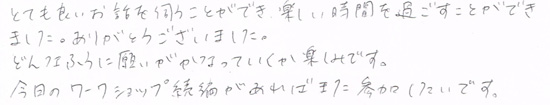 とても良いお話を伺うことができ、楽しい時間を過ごすことができ
ました。ありがとうございました。
どんなふうに願いがかなっていくか楽しみです。
今日のワークショップ続編があればまた参加したいです。